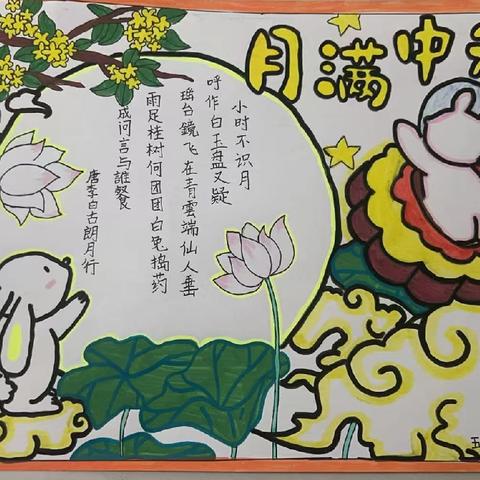 月满中
小时不识月
呼作白玉盘又疑
瑶台鏡飞在青雲端仙人垂
雨足桂树何团团白兔捣药
成问言与誰餐
唐李白古朗月行
五